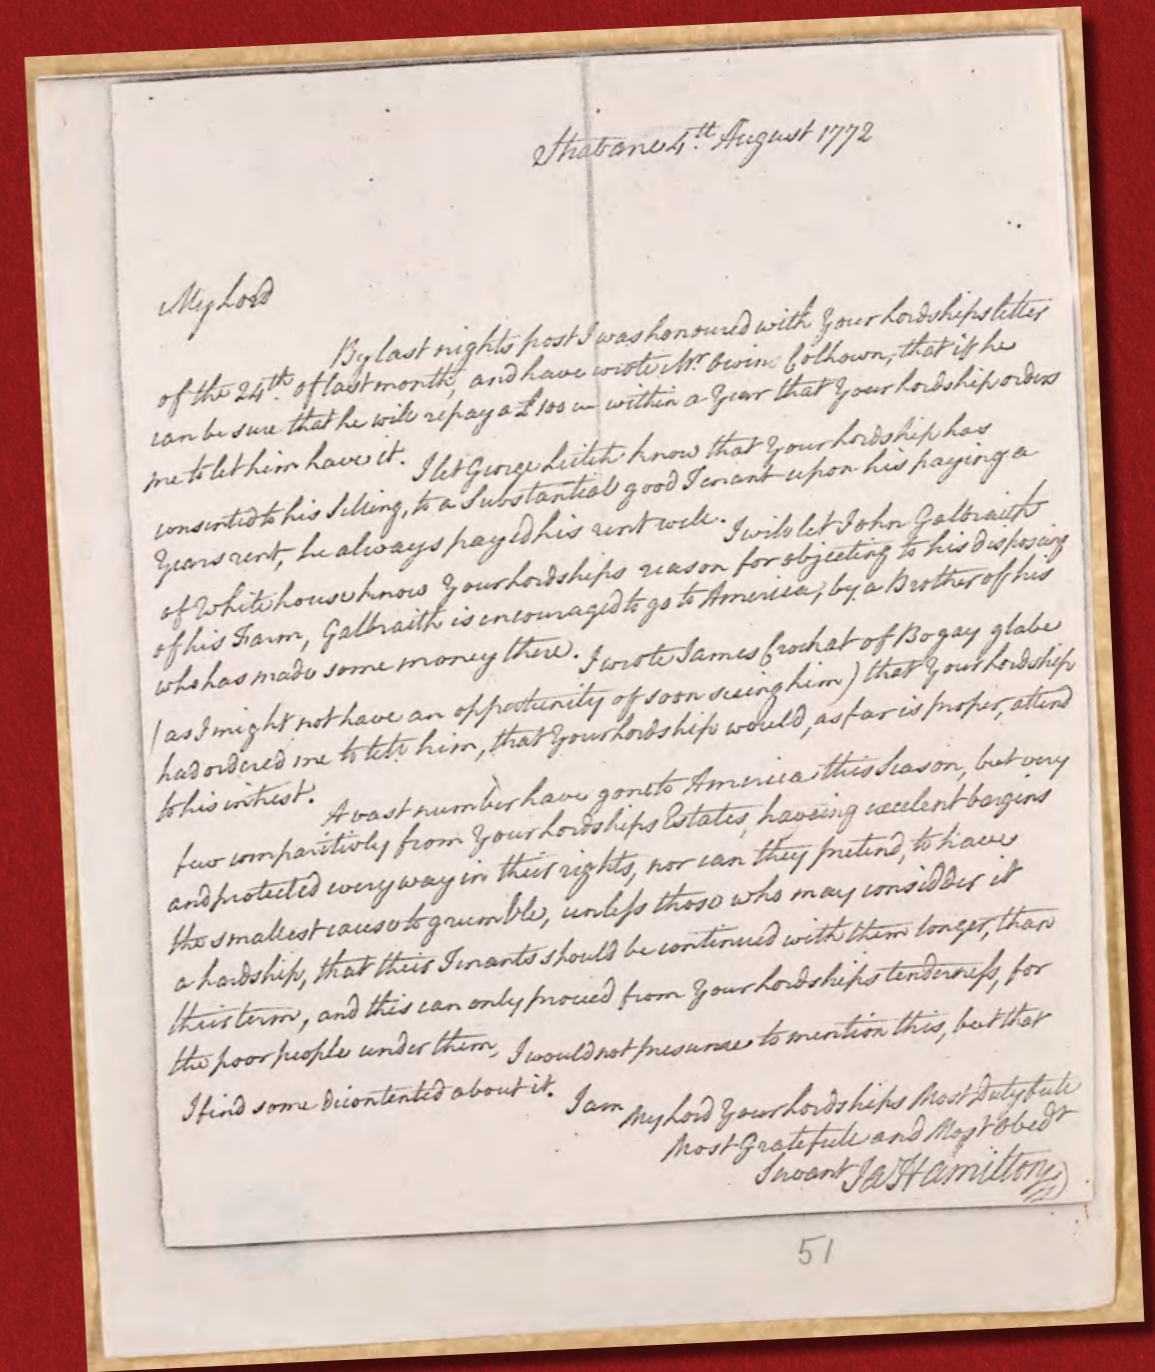 Strabane 4th August 1772
My Lord
By last nights post I was honoured with Your Lordships letter
of the 24th of last month, and have wrote Mr Owin Colhown, that if he
can be sure that he will repay a £100 in within a Year that Your Lordship orders
me to let him have it. I let George Leitch know that Your Lordship has
consented to his Selling, to a Substantial good Tenant upon his paying a
Years rent, he always payed his rent well. I will let John Galbraith
of Whitehouse know Your Lordships reason for objecting to his disposing
of his Farm, Galbraith is encouraged to go to America, by a Brother of his
who has made some money there. I wrote James Crochat of Bogay glabe
(as I might not have an oppertunity of soon seeing him) that Your Lordship
had ordered me to tell him, that Your Lordship would, as far is proper, attend
to his intrest. A vast number have gone to America this Season, but very
few comparitivly from Your Lordships Estates, haveing excelent bargins
and protected every way in their rights, nor can they pretend, to have
the smallest cause to grumble, unless those who may considder it
a hardship, that their Tenants should be continued with them longer, than
their term, and this can only proceed from Your Lordships tenderness, for
the poor people under them, I would not presume to mention this, but that
I find some dicontented about it. I am
My Lord Your Lordships Most Dutyfull
Most Gratefull and Most Obedt
Servant Ja Hamilton
51